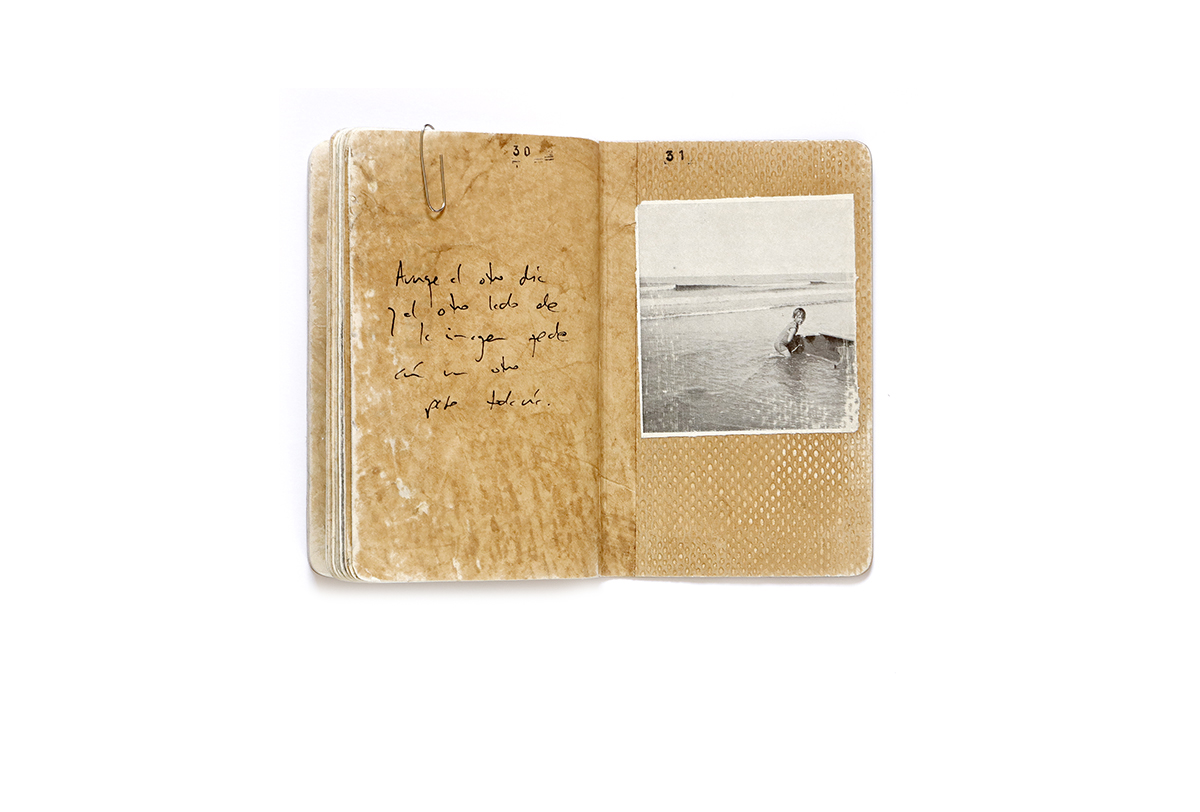 30
Aunque el otro día
y el otro lado de
la imagen quede
aún un otro
pero todavía.
31